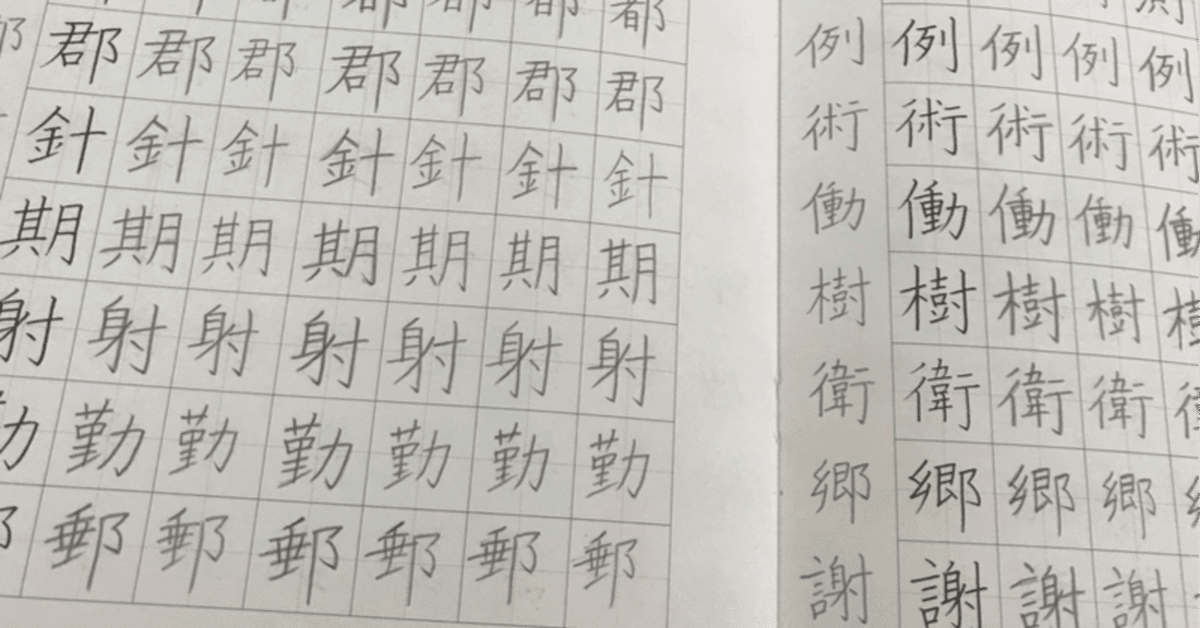 都
郡 郡 郡 郡 郡 郡 郡
針 針 針 針 針 針 針
期 期 期 期 期 期 期
射 射 射 射 射 射 射
勤 勤 勤 勤 勤 勤
郵 郵 郵 郵 郵 郵
例 例 例 例 例
術 術 術 術 術
働 働 働 働 働
樹 樹 樹 樹
衛 衛 衛 衛
郷 郷 郷 郷
謝 謝 謝 謝